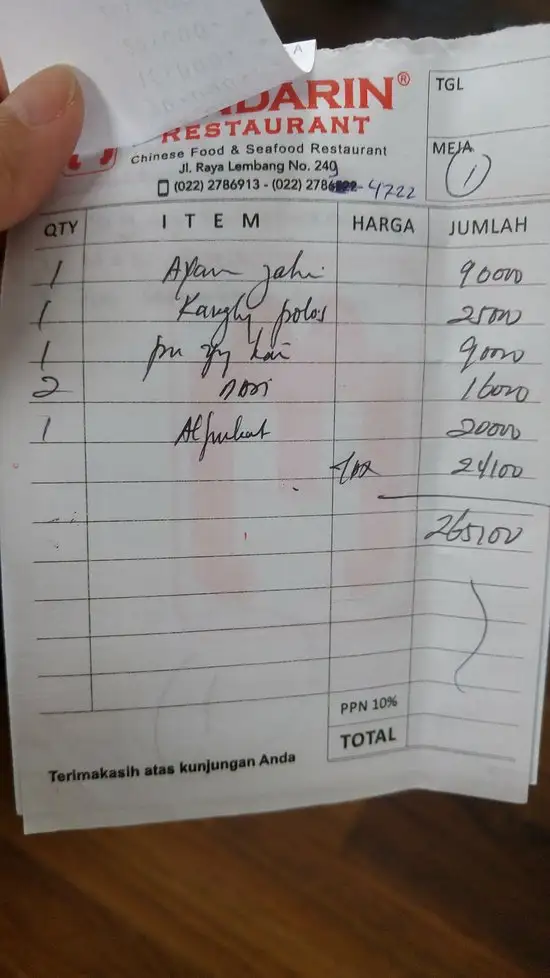 DARIN®
RESTAURANT
Chinese Food & Seafood Restaurant
Jl. Raya Lembang No. 249
(022) 2786913 - (022) 278 -4722
TGL
MEJA
1
QTY ITEM HARGA JUMLAH
1 Ayam 90000
1 Kangkung polos 25000
1 hai 90000
2 nasi 16000
1 Alpukat 20000
tax 24100
265100
PPN 10%
TOTAL
Terimakasih atas kunjungan Anda